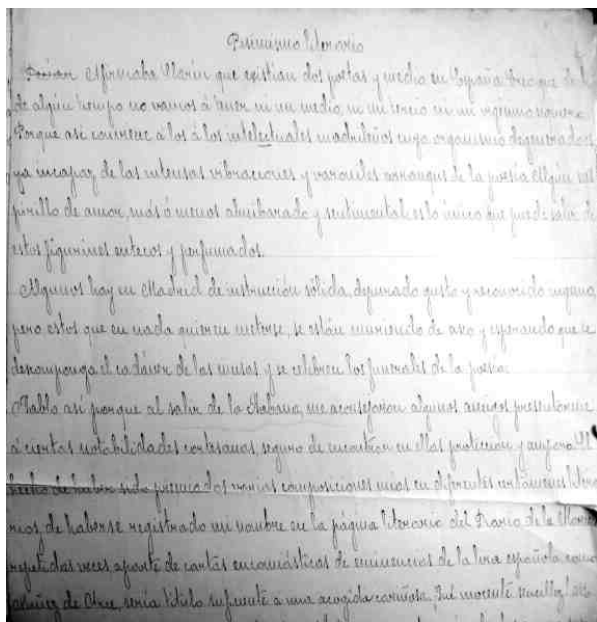 Pesimismo literario
Afirmaba Clarín que existian dos poetas y medio en España. Creo que
de algún tiempo no vamos á tener ni un medio, ni un tercio ni un vigésimo noveno
Porque asi conviene á los á los intelectuales madrileños cuyo organismo degenerado es
ya incapaz de las intensas vibraciones y varoniles arranques de la poesía Algún sus
pirillo de amor, más ó menos almibarado y sentimental es lo único que puede salir de
estos figurines entecos y perfumados.
Algunos hay en Madrid de instrucción sólida, depurado gusto y reconocido ingenio
pero estos que en nada quieren meterse, se están muriendo de asco y esperando que se
descomponga el cadáver de las musas y se celebren los funerales de la poesia.
Hablo así porque al salir de la Habana, me aconsejaron algunos amigos presentarme
á ciertas notabilidades cortesanas, seguro de encontrar en ellas protección y amparo. El
hecho de haber sido premiados varias composiciones mias en diferentes certámenes litera
rios, de haberse registrado mi nombre en la página literaria del Diario de la Marina
repetidas veces, aparte de cartas encomiásticas de eminencias de la lira española como
Núñez de Arce, sería titulo suficiente a una acogida cariñosa.